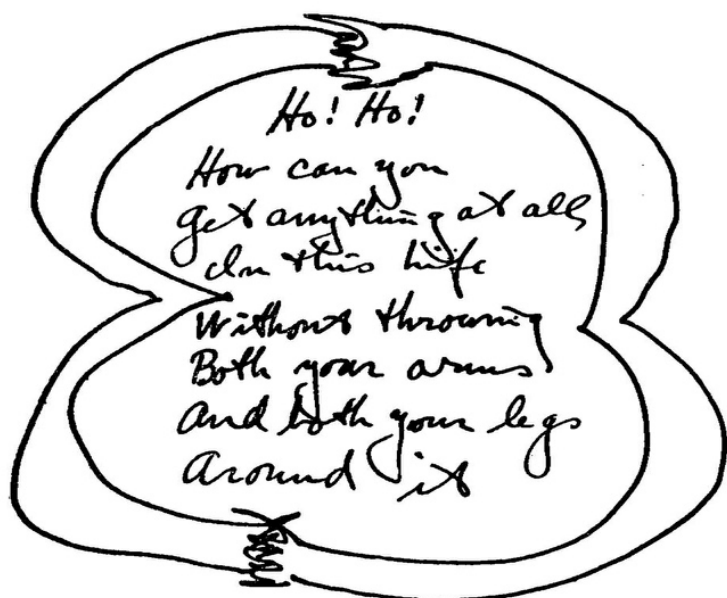 Ho! Ho!
How can you
get anything at all
In this life
Without throwing
Both your arms
And both your legs
Around it